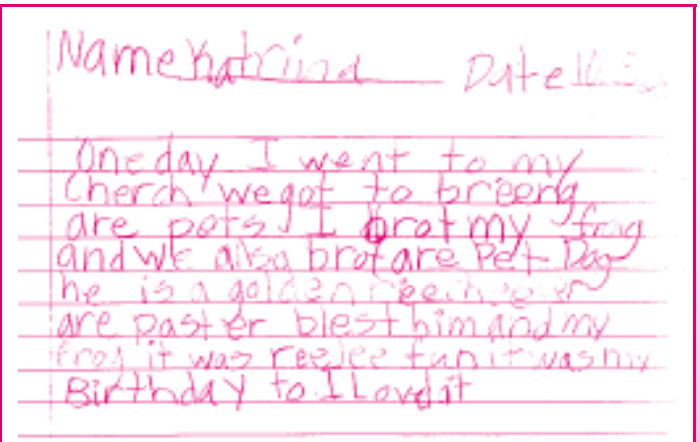 Name Katrina Date
One day I went to my
Cherch we got to breeng
are pets I brot my frog
and we also brot are Pet Dog
he is a golden
are paster blest him and my
frog it was reelee fun it was my
Birthday to I Loved it